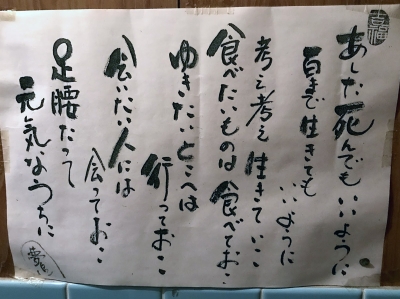 あした死んでもいいように
百まで生きても
いいように
考え考え生きていこ
食べたいものは食べておこ
ゆきたいところへは
行っておこ
会いたい人には
会っておこ
足腰たって
元気なうちに